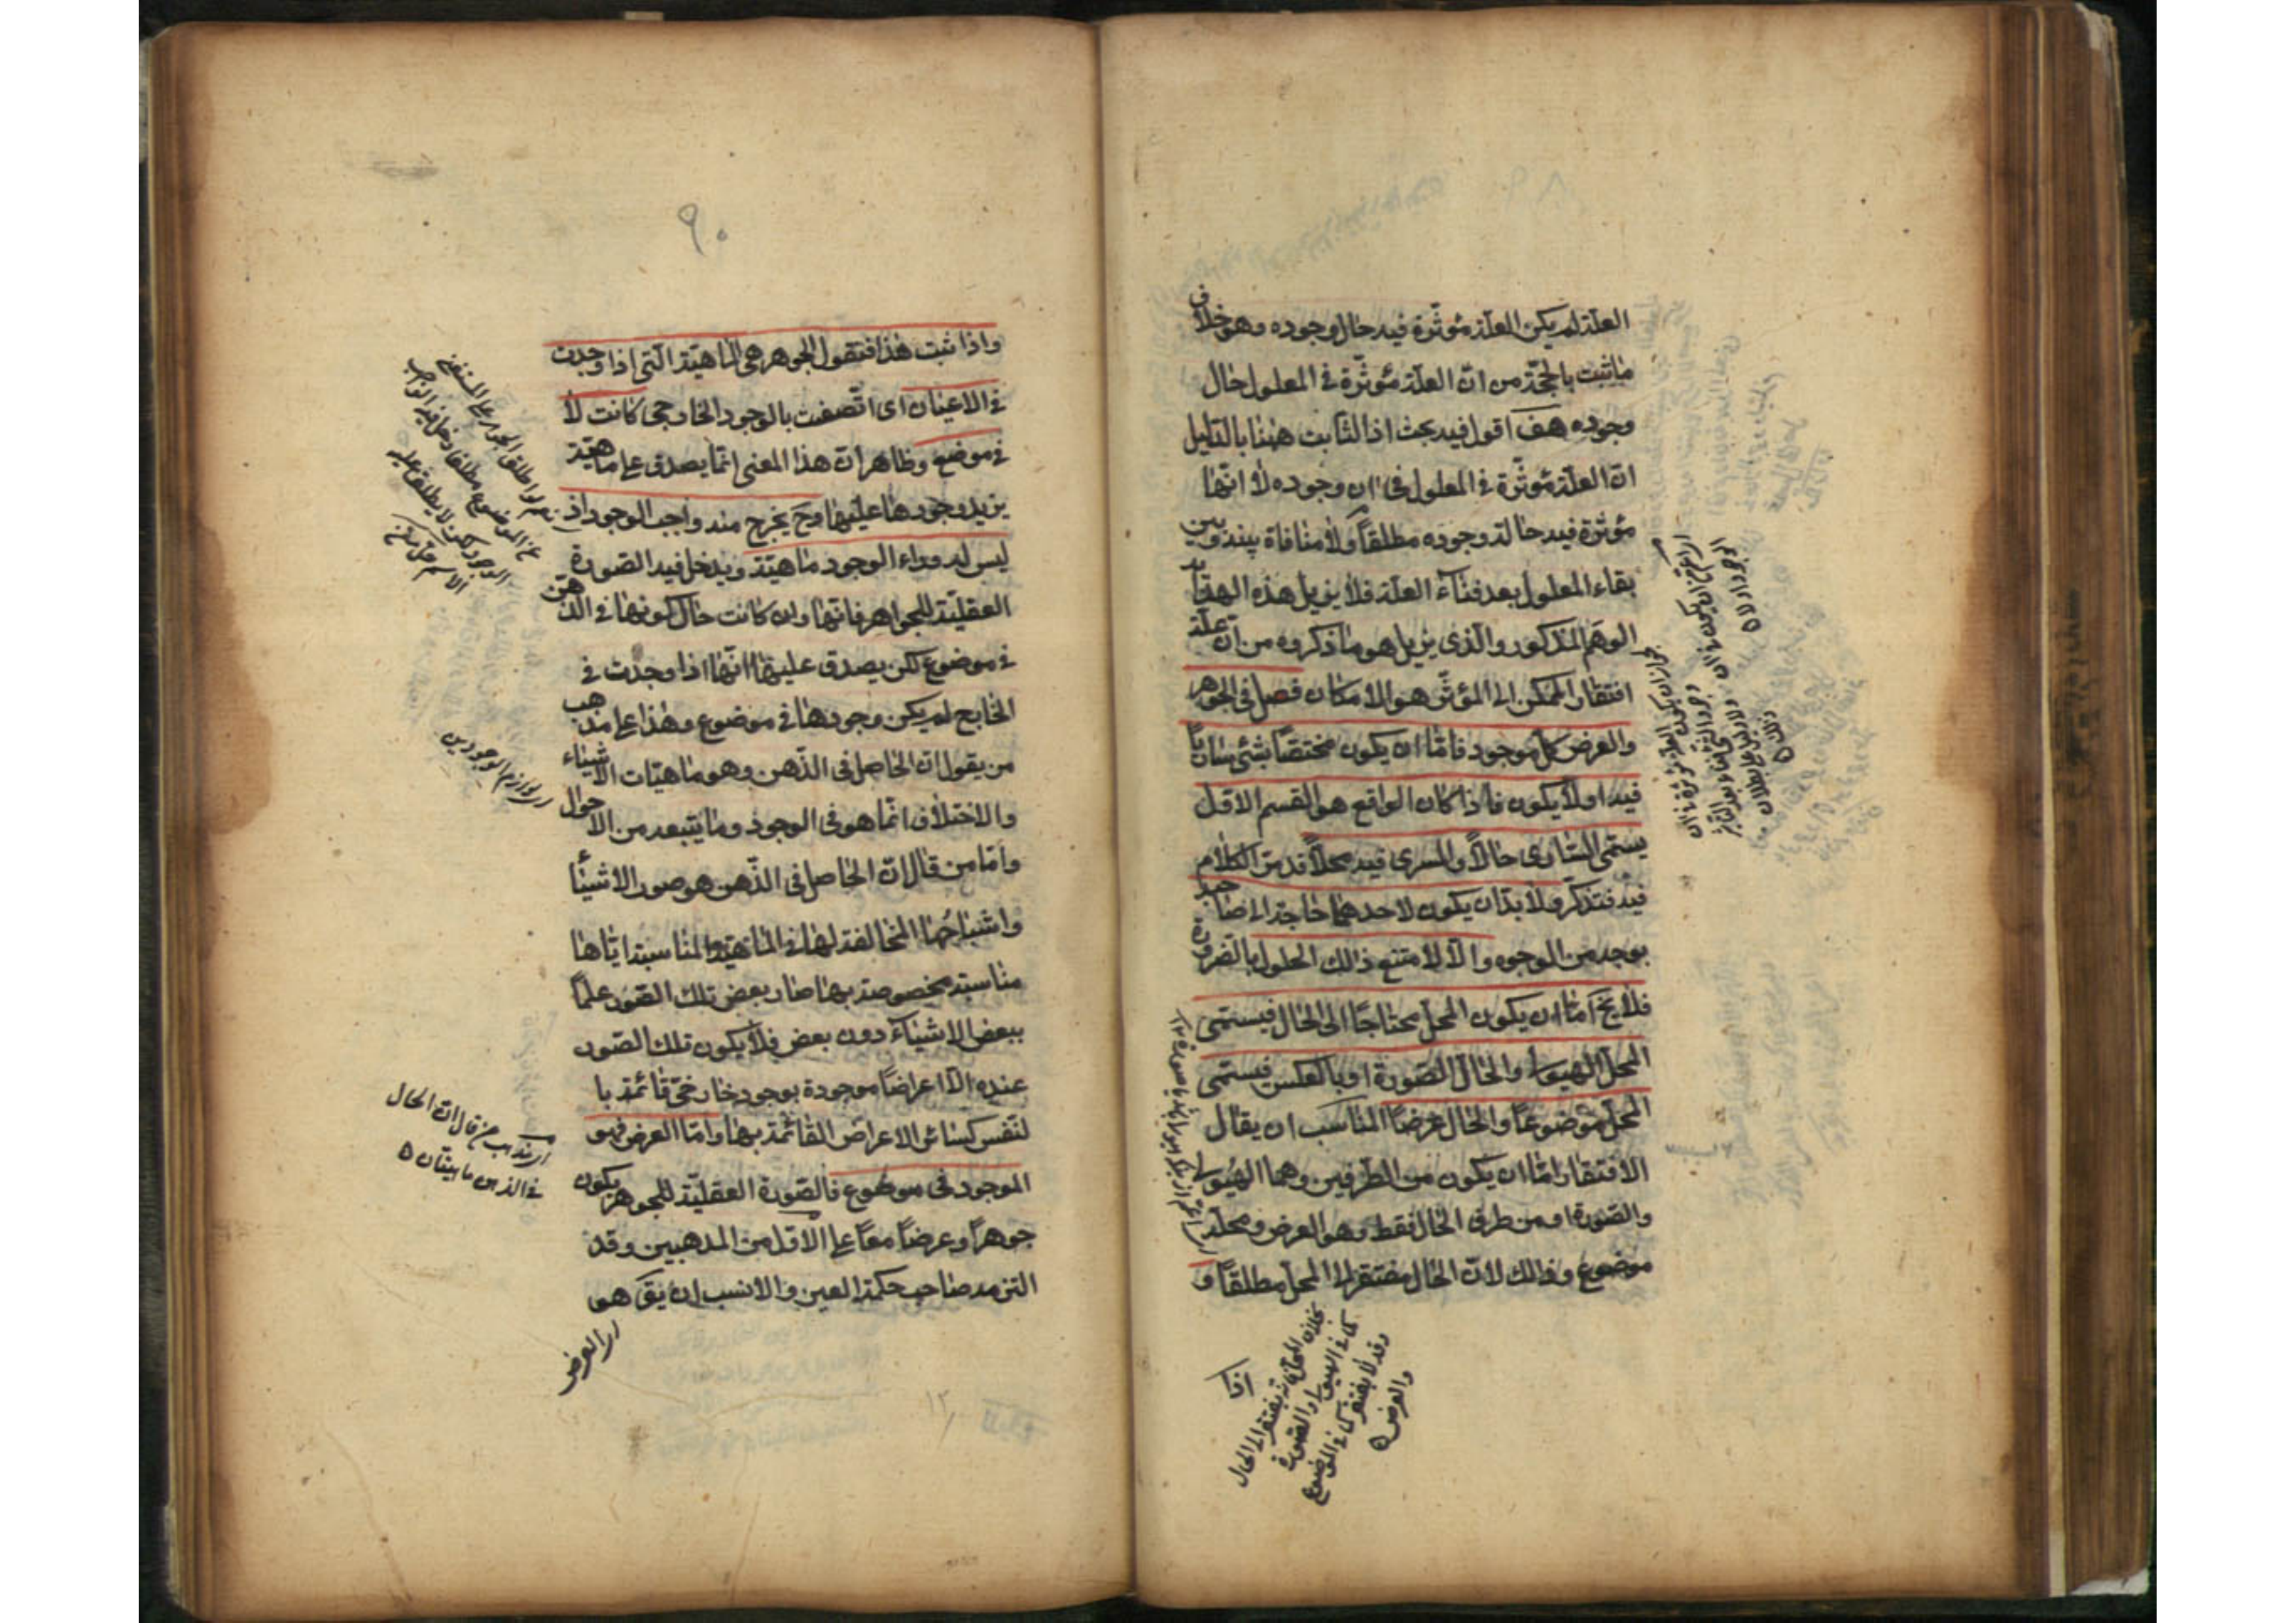 العلة لم يكن العلة مؤثرة فيه حال وجوده وهو خلاف
ما ثبت بالحجة من ان العلة مؤثرة في المعلول حال
وجوده هف اقول فيه بحث اذ الثابت ههنا بالدليل
ان العلة مؤثرة في المعلول في ان وجوده لا انها
مؤثرة فيه حالة وجوده مطلقا ولا منافاة بينه وبين
بقاء المعلول بعد فناء العلة فلا يزيل هذه الهداية
الوهم المذكور والذى يزيل هو ما ذكروه من ان علة
افتقار الممكن الى المؤثر هو الامكان فصل في الجوهر
والعرض كل موجود فاما ان يكون مختصا بشئ ساريا
فيه او لا يكون فاذا كان الواقع هو القسم الاول
يسمى السارى حالا والمسرى فيه محلا قد مر الكلام
فيه فتذكر ولا بد ان يكون لاحدهما حاجة الى صاحبه
بوجه من الوجوه والا لامتنع ذالك الحلول بالضرورة
فلا يخ اما ان يكون المحل محتاجا الى الحال فيسمى
المحل الهيولى والحال الصورة او بالعكس فيسمى
المحل موضوعا والحال عرضا المناسب ان يقال
الافتقار اما ان يكون من الطرفين وهما الهيولى
والصورة او من طرف الحال فقط وهو العرض ومحله
موضوع وذالك لان الحال مفتقر الى المحل مطلقا و
بخلاف المحل فانه قد يفتقر الى الحال
كما في الهيولى والصورة
وقد لا يفتقر كما في الموضوع
والعرض
٩٠
واذا ثبت هذا فنقول الجوهر هى الماهية التى اذا وجدت
في الاعيان اى اتصفت بالوجود الخارجى كانت لا
في موضع وظاهر ان هذا المعنى انما يصدق على ماهية
يزيد وجودها عليها وح يخرج منه واجب الوجود اذ
ليس له وراء الوجود ماهية ويدخل فيه الصورة
العقلية للجواهر فانها وان كانت حال كونها في الذهن
في موضوع لكن يصدق عليها انها اذا وجدت في
الخارج لم يكن وجودها في موضوع وهذا على مذهب
من يقول ان الحاصل في الذهن وهو ماهيات الاشياء
والاختلاف انما هو في الوجود وما يتبعه من الاحوال
واما من قال ان الحاصل في الذهن هو صور الاشيئا
واشباحها المخالفة لها في الماهية المناسبة اياها
مناسبة مخصوصة بها صار بعض تلك الصور علما
ببعض الاشياء دون بعض فلا يكون تلك الصور
عنده الا اعراضا موجودة بوجود خارجى قائمة با
لنفس كسائر الاعراض القائمة بها واما العرض فهو
الموجود في موضوع فالصورة العقلية للجوهر يكون
جوهرا وعرضا معا على الاول من المذهبين وقد
التزمه صاحب حكمة العين والانسب ان يق هو
اى لوازم الوجودين
اى مذهب من قال ان الحال
في الذهن ماهيتان
اى العرض